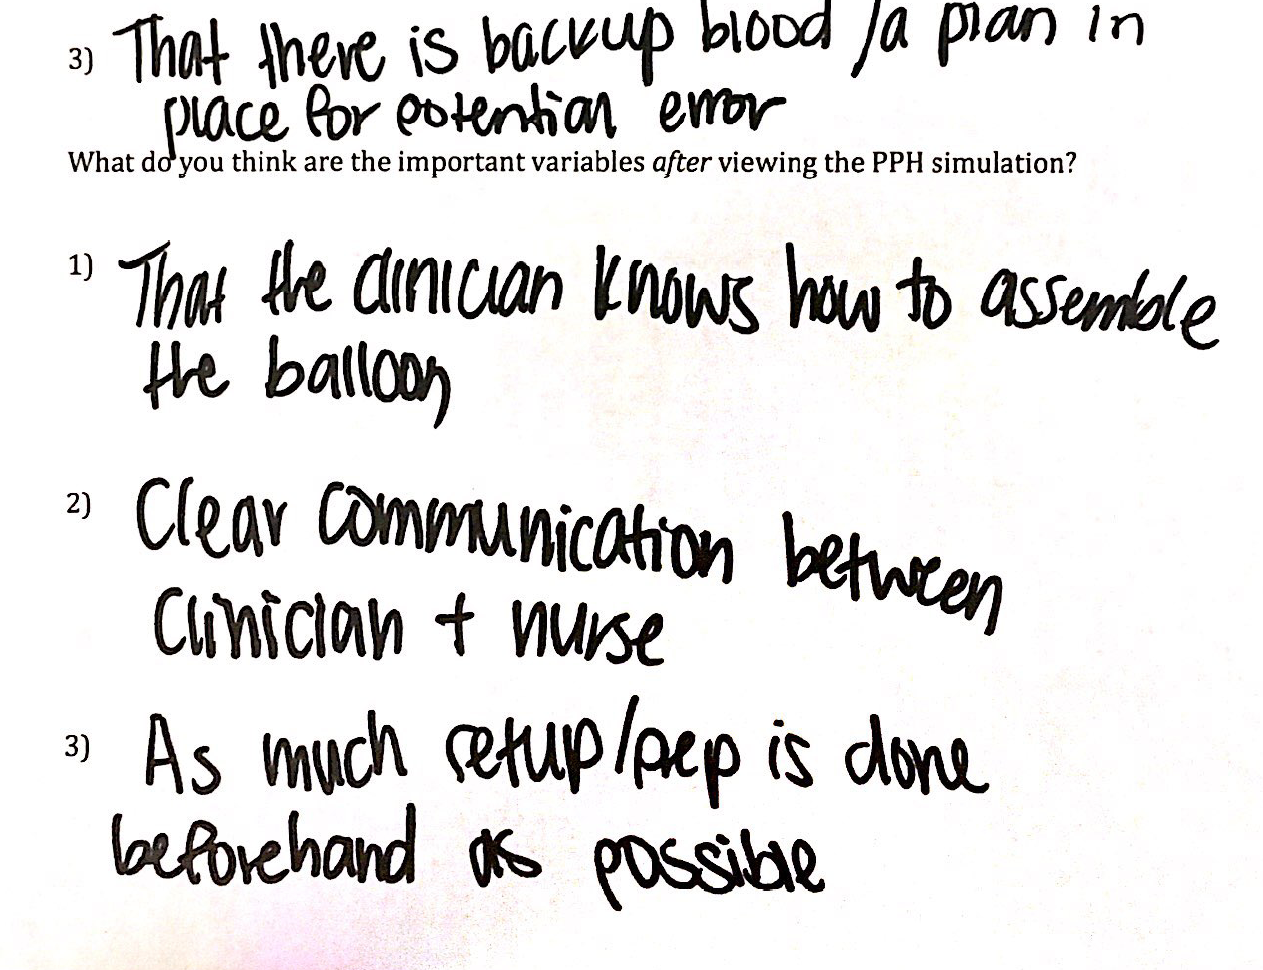 3) That there is backup blood /a plan in
place for potential error
What do you think are the important variables after viewing the PPH simulation?
1) That the clinician knows how to assemble
the balloon
2) Clear communication between
Clinician + nurse
3) As much setup/prep is done
beforehand as possible